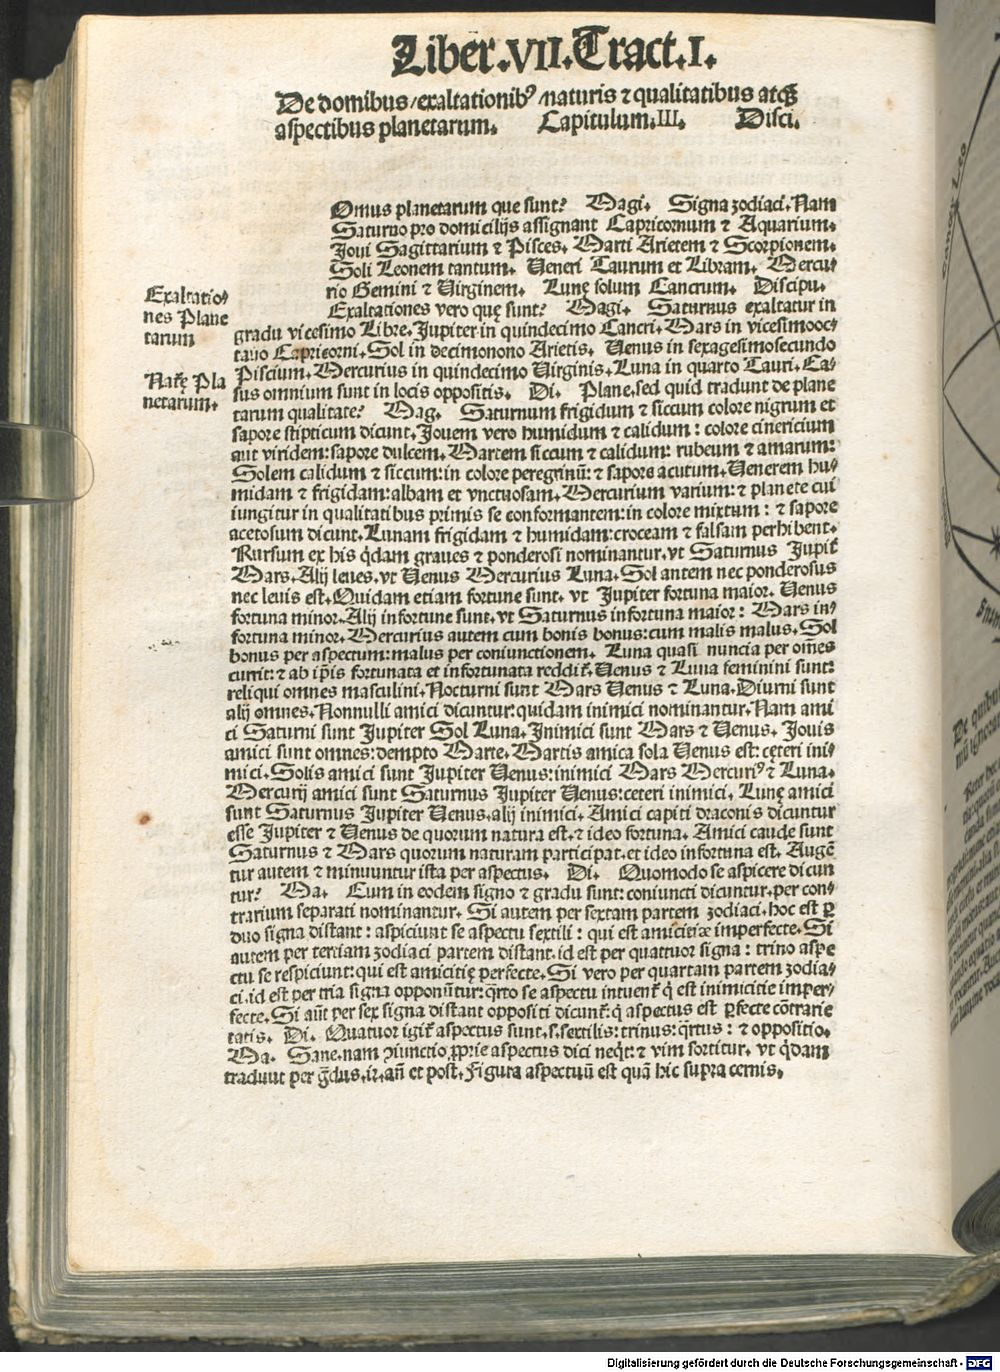 Liber.VII.Tract.I.
De domibus/exaltationibꝰ/naturis ⁊ qualitatibus atqꝫ
aspectibus planetarum. Capitulum.III. Disci.
Omus planetarum que sunt? Magi. Signa zodiaci.Nam
Saturno pro domicilijs assignant Capricornum ⁊ Aquarium.
Joui Sagittarium ⁊ Pisces. Marti Arietem ⁊ Scorpionem.
Soli Leonem tantum. Veneri Taurum et Libram. Mercu⸗
rio Gemini ⁊ Virginem. Lunę solum Cancrum. Discipu.
Exaltationes vero quę sunt? Magi. Saturnus exaltatur in
Exaltatio⸗
nes Plane
tarum
gradu vicesimo Libre.Jupiter in quindecimo Cancri.Mars in vicesimooc⸗
tauo Capricorni.Sol in decimonono Arietis. Venus in sexagesimosecundo
Piscium.Mercurius in quindecimo Virginis.Luna in quarto Tauri.Ca⸗
Natę Pla
netarum.
sus omnium sunt in locis oppositis. Di. Plane,sed quid tradunt de plane
tarum qualitate? Mag. Saturnum frigidum ⁊ siccum colore nigrum et
sapore stipticum dicunt.Jouem vero humidum ⁊ calidum: colore cinericium
aut viridem:sapore dulcem.Martem siccum ⁊ calidum: rubeum ⁊ amarum:
Solem calidum ⁊ siccum:in colore peregrinū: ⁊ sapore acutum.Venerem hu⸗
midam ⁊ frigidam:albam et vnctuosam.Mercurium varium:⁊ planete cui
iungitur in qualitatibus primis se conformantem:in colore mixtum: ⁊ sapore
acetosum dicunt.Lunam frigidam ⁊ humidam:croceam ⁊ falsam perhibent.
Rursum ex his q̇dam graues ⁊ ponderosi nominantur.vt Saturnus Jupit̃
Mars.Alij leues.vt Venus Mercurius Luna.Sol autem nec ponderosus
nec leuis est.Quidam etiam fortune sunt. vt Jupiter fortuna maior. Venus
fortuna minor.Alij infortune sunt.vt Saturnus infortuna maior: Mars in⸗
fortuna minor.Mercurius autem cum bonis bonus:cum malis malus.Sol
bonus per aspectum:malus per coniunctionem. Luna quasi nuncia per om̄es
currit:⁊ ab ip̄is fortunata et infortunata reddit̃.Venus ⁊ Luna feminini sunt:
reliqui omnes masculini.Nocturni sunt Mars Venus ⁊ Luna.Diurni sunt
alij omnes.Nonnulli amici dicuntur:quidam inimici nominantur.Nam ami
ci Saturni sunt Jupiter Sol Luna.Inimici sunt Mars ⁊ Venus. Jouis
amici sunt omnes:dempto Marte.Martis amica sola Venus est:cęteri ini⸗
mici.Solis amici sunt Jupiter Venus:inimici Mars Mercuriꝰ ⁊ Luna.
Mercurij amici sunt Saturnus Jupiter Venus:ceteri inimici. Lunę amici
sunt Saturnus Jupiter Venus.alij inimici. Amici capiti draconis dicuntur
esse Jupiter ⁊ Venus de quorum natura est.⁊ ideo fortuna. Amici caude sunt
Saturnus ⁊ Mars quorum naturam participat.et ideo infortuna est. Augē
tur autem ⁊ minuuntur ista per aspectus. Di. Quomodo se aspicere dicun
tur? Ma. Cum in eodem signo ⁊ gradu sunt:coniuncti dicuntur.per con⸗
trarium separati nominantur. Si autem per sextam partem zodiaci.hoc est ꝑ
duo signa distant: aspiciunt se aspectu sextili: qui est amicitiæ imperfecte. Si
autem per tertiam zodiaci partem distant.id est per quattuor signa: trino aspe
ctu se respiciunt:qui est amicitię perfecte.Si vero per quartam partem zodia⸗
ci.id est per tria signa opponūtur:q̄rto se aspectu intuent̃ q̇ est inimicitie imper⸗
fecte.Si aūt per sex signa distant oppositi dicunt̃:q̇ aspectus est ꝑfecte cōtrarie
tatis. Di. Quatuor igit̃ aspectus sunt.s.sextilis:trinus:q̄rtus: ⁊ oppositio.
Ma. Sane.nam ꝯiunctio ꝓprie aspectus dici neq̇t:⁊ vim sortitur. vt q̇dam
traduut per g̈dus.iż.añ et post.Figura aspectuū est quā hic supra cernis.